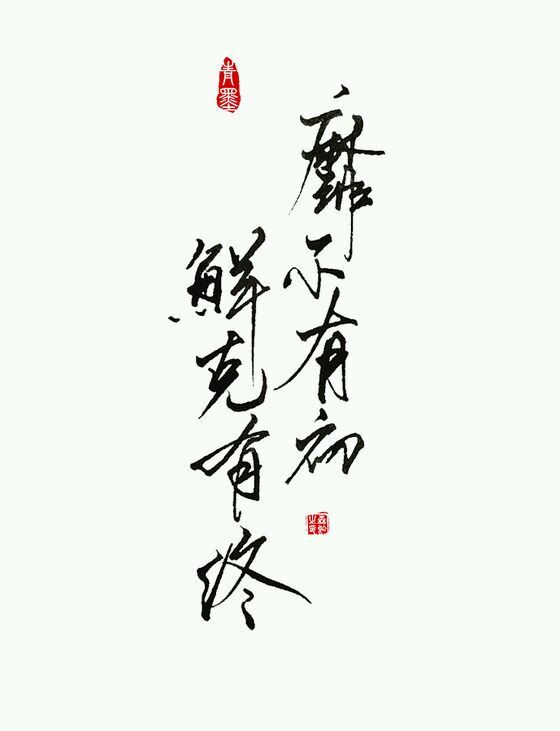 靡不有初
鮮克有终
青墨